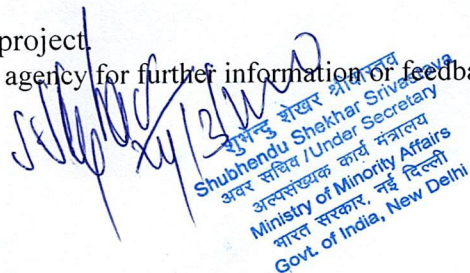 project.
agency for further information or feedba
शुभेन्दु शेखर श्रीवास्तव
Shubhendu Shekhar Srivastava
अवर सचिव /Under Secretary
अल्पसंख्यक कार्य मंत्रालय
Ministry of Minority Affairs
भारत सरकार, नई दिल्ली
Govt. of India, New Delhi